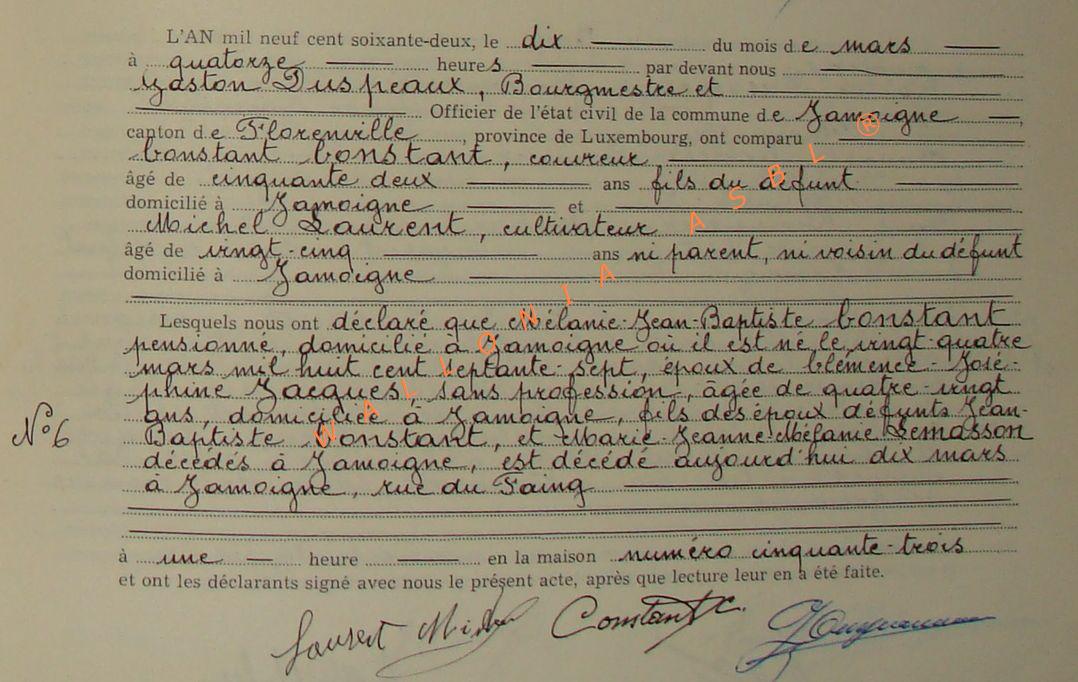 L'AN mil neuf cent soixante-deux, le dix du mois de mars
à quatorze heures par devant nous
Gaston Duspeaux, Bourgmestre et
Officier de l'état civil de la commune de Jamoigne,
canton de Florenville, province de Luxembourg, ont comparu
Constant Constant, couvreur,
âgé de cinquante deux ans fils du défunt
domicilié à Jamoigne et
Michel Laurent, cultivateur
âgé de vingt-cinq ans ni parent, ni voisin du défunt
domicilié à Jamoigne
Lesquels nous ont déclaré que Mélanie-Jean-Baptiste Constant
pensionné, domicilié à Jamoigne où il est né le vingt-quatre
mars mil huit cent septante-sept, époux de Clémence-José-
phine Jacques, sans profession, âgée de quatre-vingt
ans, domiciliée à Jamoigne, fils des époux défunts Jean-
Baptiste Constant, et Marie-Jeanne-Mélanie Lemasson
N°6
décédés à Jamoigne, est décédé aujourd'hui dix mars
à Jamoigne, rue du Faing
à une heure en la maison numéro cinquante-trois
et ont les déclarants signé avec nous le présent acte, après que lecture leur en a été faite.
Laurent Michel Constant C.
WALLONIA ASBL ®